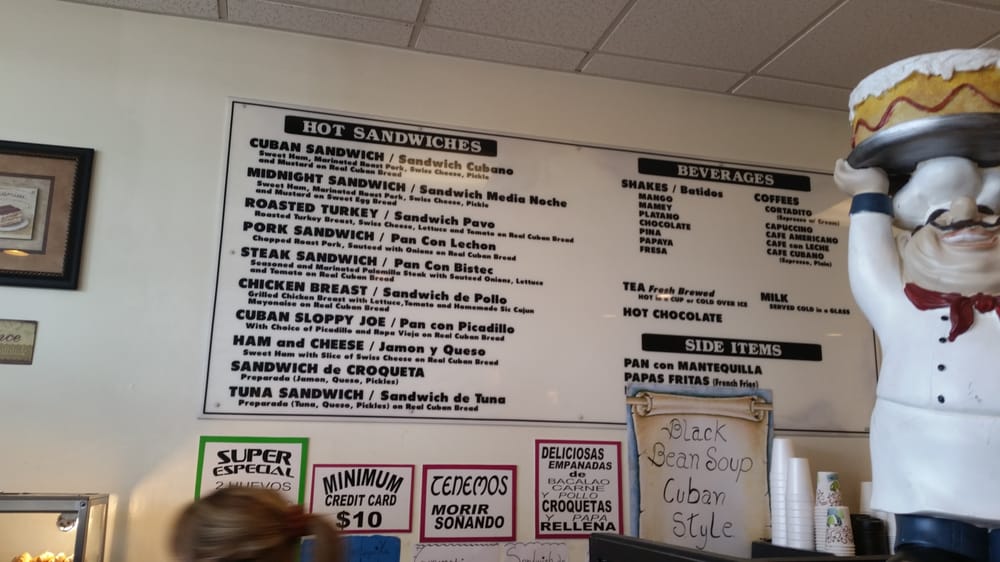 HOT SANDWICHES
CUBAN SANDWICH / Sandwich Cubano
Sweet Ham, Marinated Roast Pork, Swiss Cheese, Pickle
and Mustard on Real Cuban Bread
MIDNIGHT SANDWICH / Sandwich Media Noche
Sweet Ham, Marinated Roast Pork, Swiss Cheese, Pickle
and Mustard on Sweet Egg Bread
ROASTED TURKEY / Sandwich Pavo
Roasted Turkey Breast, Swiss Cheese, Lettuce and Tomato on Real Cuban Bread
PORK SANDWICH / Pan Con Lechon
Chopped Roast Pork, Sauteed with Onions on Real Cuban Bread
STEAK SANDWICH / Pan Con Bistec
Seasoned and Marinated Palomilla Steak with Sauteed Onions, Lettuce
and Tomato on Real Cuban Bread
CHICKEN BREAST / Sandwich de Pollo
Grilled Chicken Breast with Lettuce, Tomato and Homemade Sic Cujan
Mayonaise on Real Cuban Bread
CUBAN SLOPPY JOE / Pan con Picadillo
With Choice of Picadillo and Ropa Vieja on Real Cuban Bread
HAM and CHEESE / Jamon y Queso
Sweet Ham with Slice of Swiss Cheese on Real Cuban Bread
SANDWICH de CROQUETA
Preparada (Jamon, Queso, Pickles)
TUNA SANDWICH / Sandwich de Tuna
Preparada (Tuna, Queso, Pickles) on Real Cuban Bread
BEVERAGES
SHAKES / Batidos
MANGO
MAMEY
PLATANO
CHOCOLATE
PINA
PAPAYA
FRESA
COFFEES
CORTADITO
(Espresso w/ Cream)
CAPUCCINO
CAFE AMERICANO
CAFE con LECHE
CAFE CUBANO
(Espresso, Plain)
TEA Fresh Brewed
HOT in CUP or COLD OVER ICE
HOT CHOCOLATE
MILK
SERVED COLD in a GLASS
SIDE ITEMS
PAN con MANTEQUILLA
PAPAS FRITAS (French Fries)
SUPER
ESPECIAL
2 HUEVOS
MINIMUM
CREDIT CARD
$10
TENEMOS
MORIR
SOÑANDO
DELICIOSAS
EMPANADAS
de
BACALAO
CARNE
Y POLLO
CROQUETAS
Y PAPA
RELLENA
Black
Bean Soup
Cuban
Style